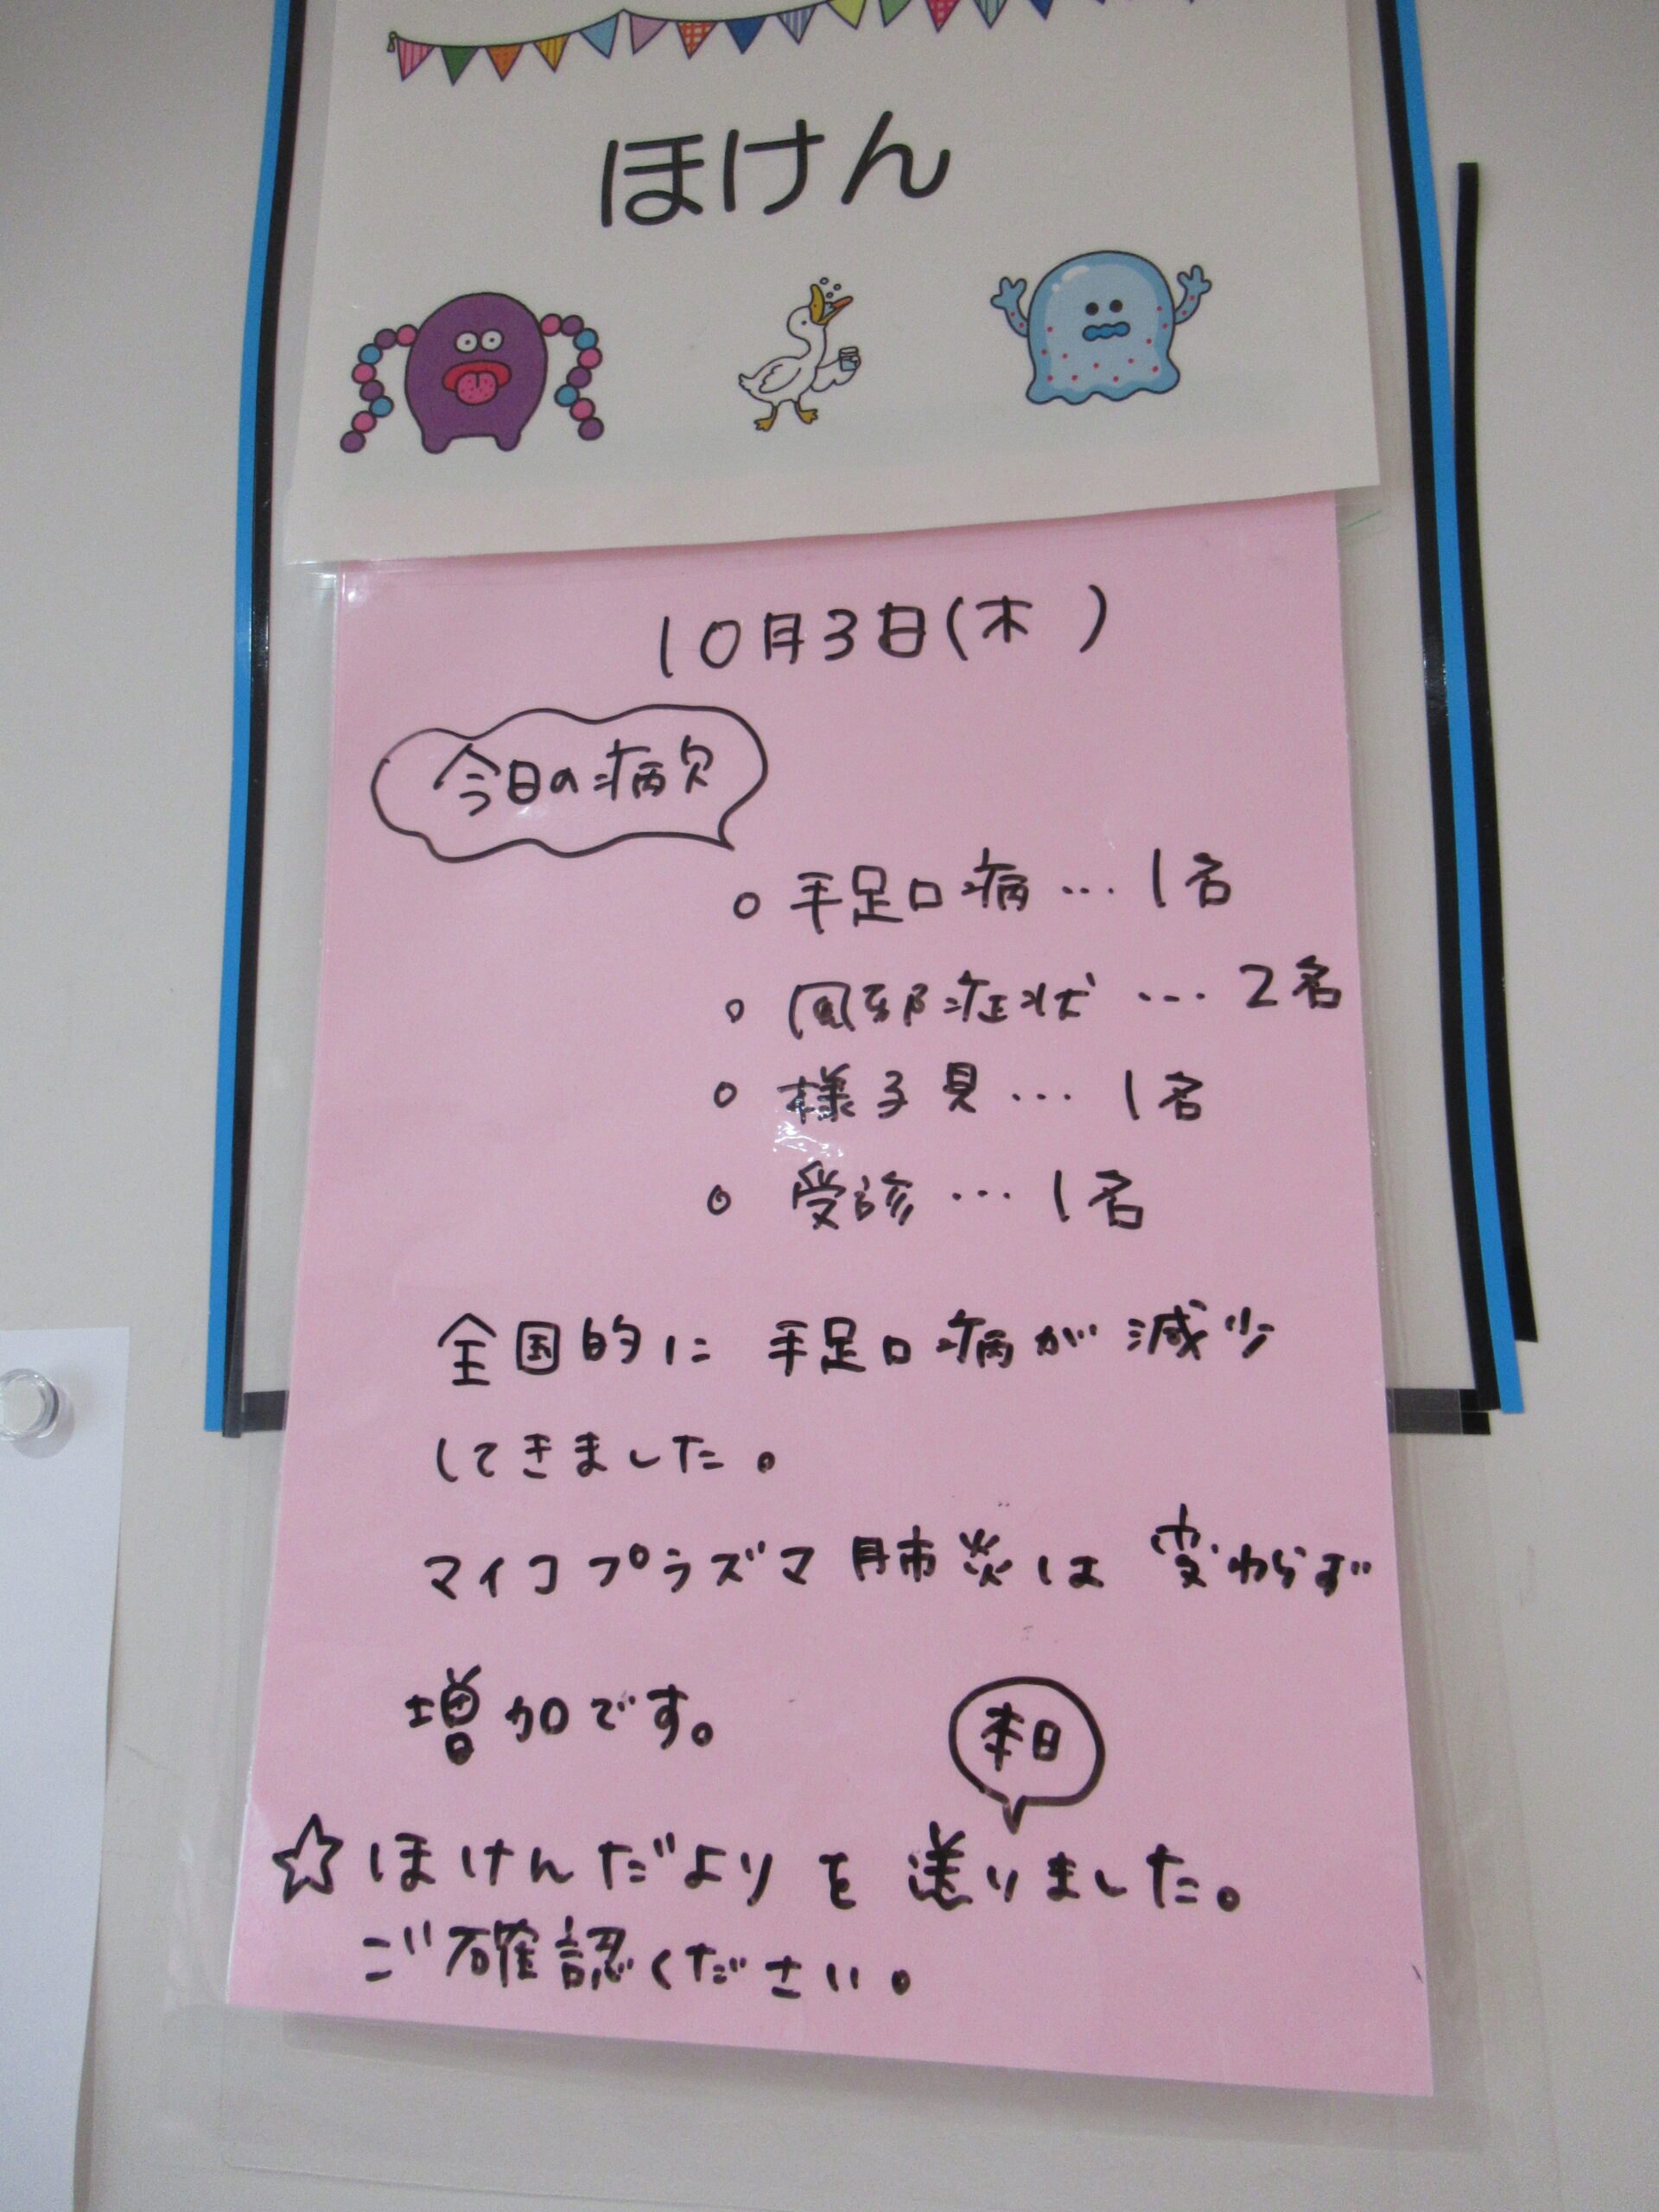 ほけん
10月3日(木 )
今日の病欠
○ 手足口病…1名
○ 風邪症状…2名
○ 様子見…1名
○ 受診…1名
全国的に手足口病が減少
してきました。
マイコプラズマ肺炎は変わらず
増加です。
本日
☆ほけんだよりを送りました。
ご確認ください。